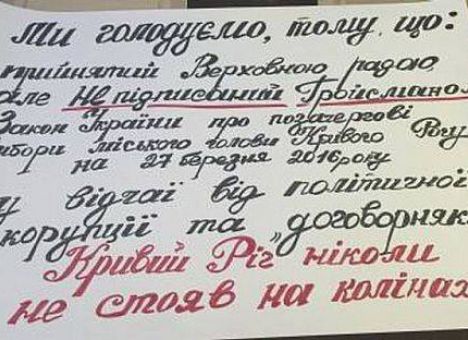 Ми голодуємо, тому, що:
прийнятий Верховною радою,
але не підписаний Гройсманом
Закон України про позачергові
вибори міського голови Кривого Рогу
на 27 березня 2016 року
у відчаї від політичної
корупції та „договорняк
Кривий Ріг ніколи
не стояв на колінах